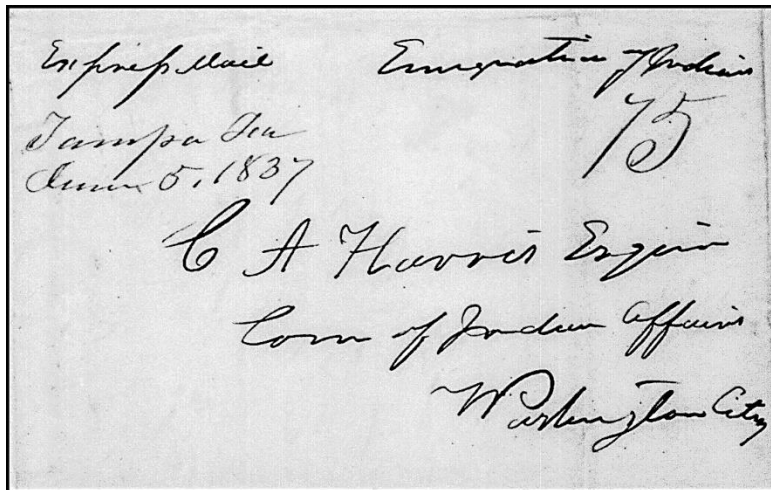 Express Mail
Emigration of Indians
75
Tampa Fla
June 5, 1837
C A Harris Esquire
Com of Indian Affairs
Washington City